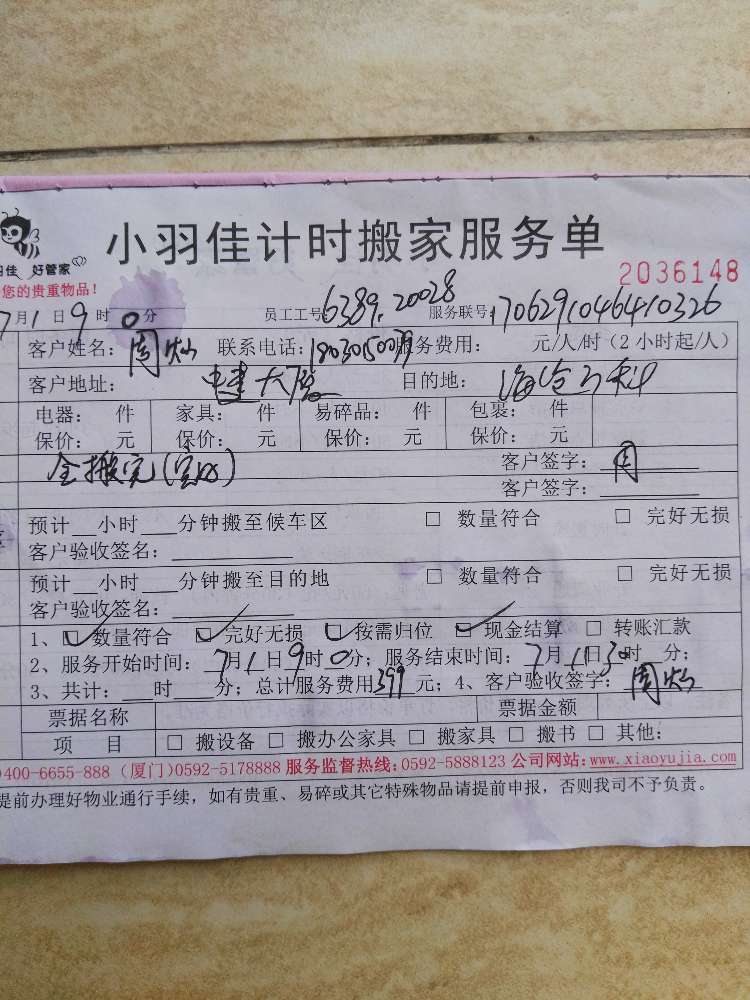 小羽佳计时搬家服务单
羽佳 好管家
您的贵重物品!
2036148
7月1日9时0分 员工工号6389.20028 服务联号:1706291046410326
客户姓名:周灿 联系电话: 服务费用: 元/人/时(2小时起/人)
客户地址: 中建大 目的地:
电器: 件 家具: 件 易碎品: 件 包裹: 件
保价: 元 保价: 元 保价: 元 保价: 元
全搬完(完好) 客户签字:周
客户签字:
预计__小时__分钟搬至候车区 □ 数量符合 □ 完好无损
客户验收签名:
预计__小时__分钟搬至目的地 □ 数量符合 □ 完好无损
客户验收签名:
1、☑数量符合 ☑完好无损 ☑按需归位 ☑现金结算 □ 转账汇款
2、服务开始时间:7月1日9时0分;服务结束时间:7月1日 时 分;
3、共计: 时 分;总计服务费用399元;4、客户验收签字:周灿
票据名称 票据金额
项 目 □ 搬设备 □ 搬办公家具 □ 搬家具 □ 搬书 □ 其他:
400-6655-888 (厦门)0592-5178888 服务监督热线:0592-5888123 公司网站:www.xiaoyujia.com
提前办理好物业通行手续,如有贵重、易碎或其它特殊物品请提前申报,否则我司不予负责。